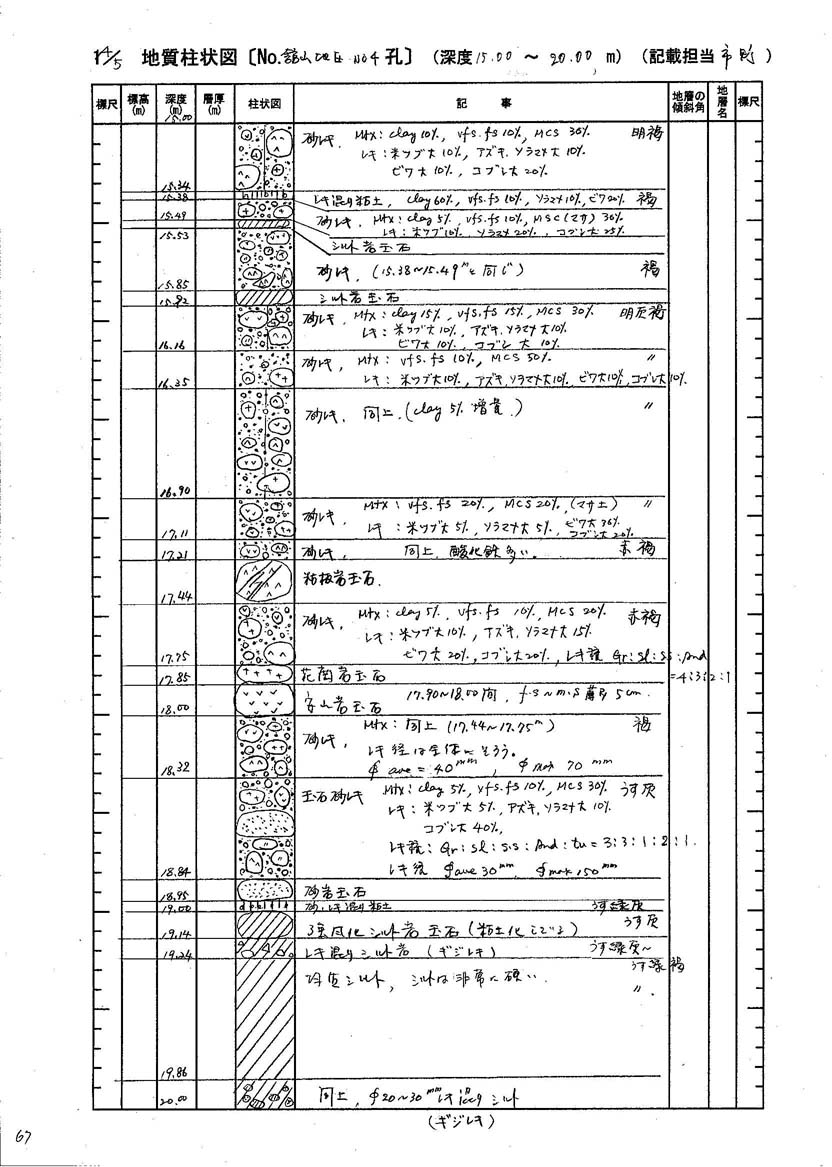 4/5 地質柱状図〔No.舘山地区 No4孔〕(深度15.00 ~ 20.00 m) (記載担当
標尺 標高(m) 深度(m) 層厚(m) 柱状図 記 事 地層の傾斜角 地層名 標尺
15.00
砂レキ, Mtx: clay 10%, vfs.fs 10%, MCS 30% 明褐
レキ:米ツブ大10%, アズキ, ソラマメ大10%
ビワ大10%, コブシ大20%
15.34
レキ混り粘土, clay 60%, vfs.fs 10%, ソラマメ10%, ビワ20% 褐
15.38
砂レキ, Mtx: clay 5%, vfs.fs 10%, MSC(マサ) 30%
レキ:米ツブ10%, ソラマメ20%, コブシ大25%
15.49
シルト岩玉石
15.53
砂レキ, (15.38~15.49mと同じ) 褐
15.85
シルト岩玉石
15.92
砂レキ, Mtx: clay 15%, vfs.fs 15%, MCS 30% 明灰褐
レキ:米ツブ大10%, アズキ, ソラマメ大10%
ビワ大10%, コブシ大10%
16.16
砂レキ, Mtx: vfs.fs 10%, MCS 50% 〃
レキ:米ツブ大10%, アズキ, ソラマメ大10%, ビワ大10%, コブシ大10%
16.35
砂レキ, 同上,(clay 5% 増量,) 〃
16.90
砂レキ, Mtx: vfs.fs 20%, MCS 20%,(マサ土) 〃
レキ:米ツブ大5%, ソラマメ大5%, ビワ大30%
コブシ大20%
17.11
砂レキ, 同上, 酸化鉄多い。 赤褐
17.21
粘板岩玉石.
17.44
砂レキ, Mtx: clay 5%, vfs.fs 10%, MCS 20% 赤褐
レキ:米ツブ大10%, アズキ, ソラマメ大15%
ビワ大20%, コブシ大20%, レキ種 Gr:sl:ss:And
=4:3:2:1
17.75
花崗岩玉石
17.85
安山岩玉石 17.90~18.00間, f.s~m.s 5cm.
18.00
砂レキ, Mtx: 同上(17.44~17.75m) 褐
レキ径は全体にそろう。
φ ave = 40mm, φ max 70 mm
18.32
玉石砂レキ Mtx: clay 5%, vfs.fs 10%, MCS 30% うす灰
レキ:米ツブ大5%, アズキ, ソラマメ大10%
コブシ大40%,
レキ種:Gr:sl:s.s:And:tu=3:3:1:2:1.
レキ径 φave 30mm, φmax 150mm
18.84
砂岩玉石
18.95
砂・レキ混り粘土 うす緑灰
19.00
強風化シルト岩玉石(粘土化している) うす灰
19.14
レキ混りシルト岩 (ギジレキ) うす緑灰~
うす緑褐
19.24
砂質シルト, シルトは非常に硬い. 〃
19.86
同上, φ20~30mmレキ混りシルト
20.00
(ギジレキ)
67